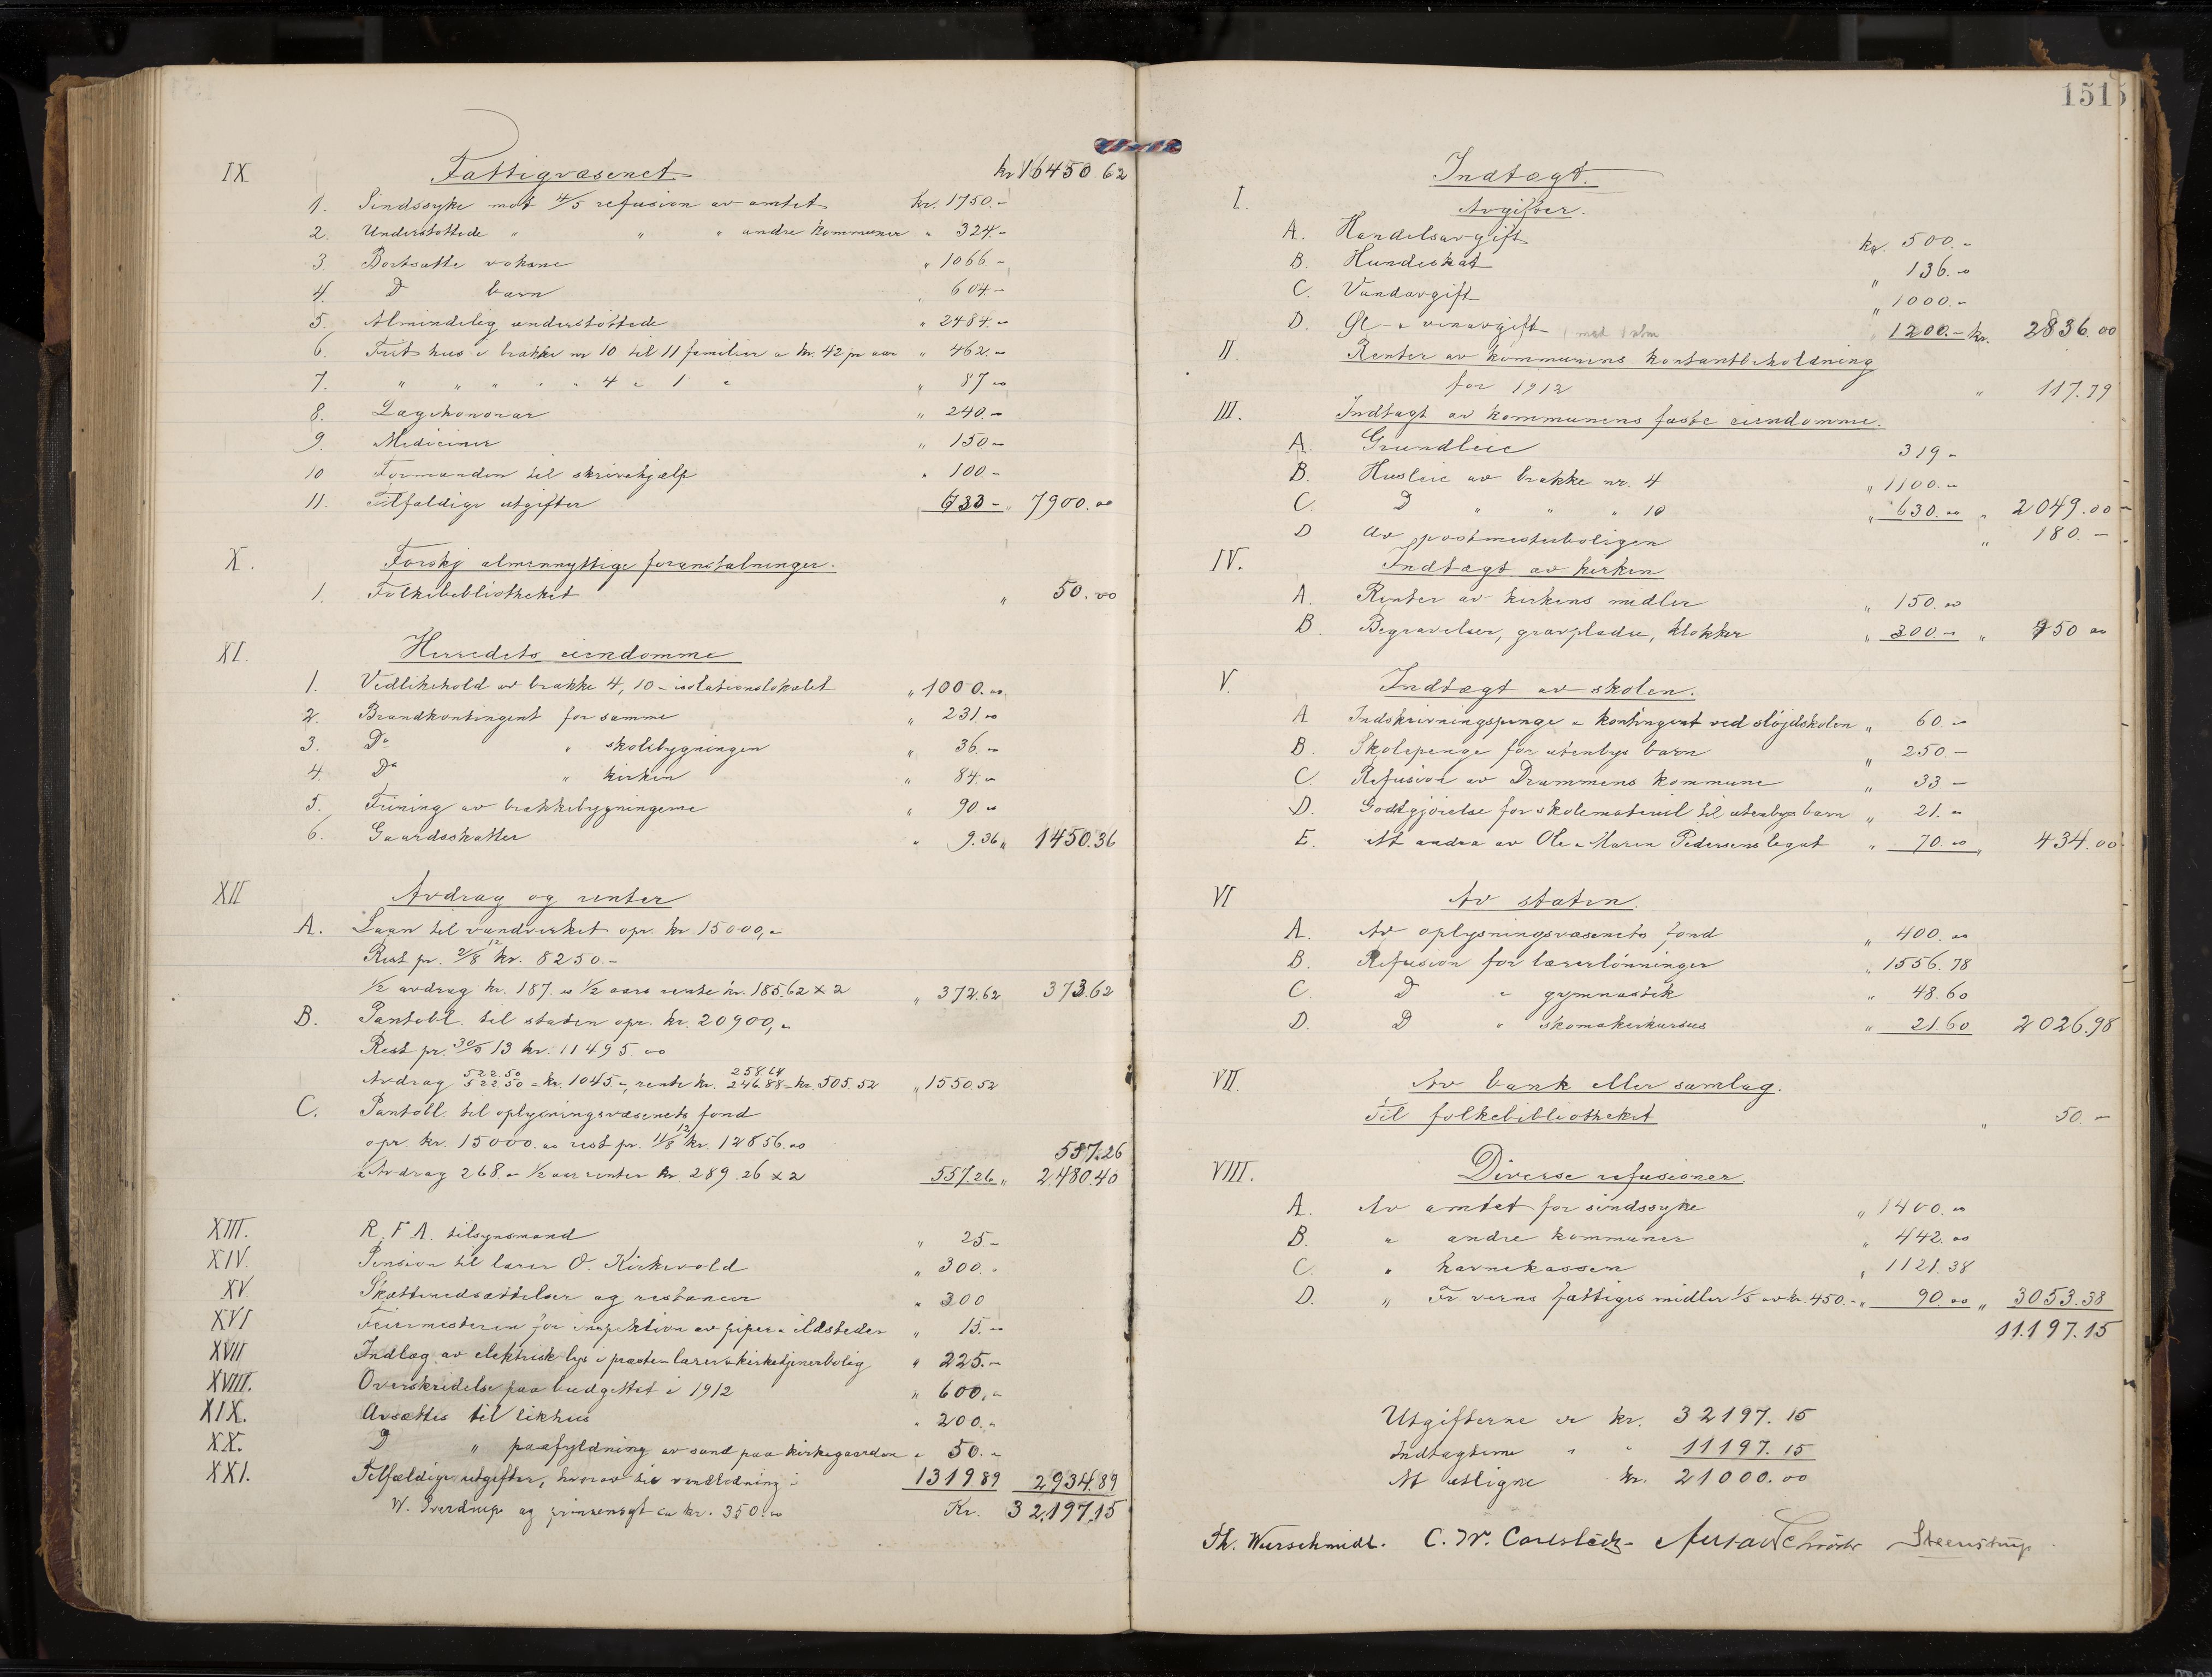 IX Fattigvæsenet kr 16450.62
1. Sindssyke mot 4/5 refusion av amtet kr. 1750.-
2. Understøttede " " " andre kommuner " 324.-
3. Bortsatte voksne " 1066.-
4. D barn " 604.-
5. Almindelig understøttede " 2484.-
6. Frit hus i brakke nr 10 til 11 familier a kr. 42 pr aar " 462.-
7. " " " " " 4 " 1 " " 87.00
8. Lægehonorar " 240.-
9. Mediciner " 150.-
10 Formanden til skrivehjælp " 100.-
11. Tilfældige utgifter " 633.- " 7900.00
X. Forskj almennyttige foranstaltninger.
1. Folkebibliotheket " 50.00
XI. Herredets eiendomme
1. Vedlikehold av brakke 4, 10 - isolationslokalet " 1000.00
2. Brandkontingent for samme " 231.00
3. Do " skolebygningen " 36.-
4. Do " kirken " 84.-
5. Feining av brakkebygningerne " 90.00
6. Gaardsskatter " 9.36 " 1450.36
XII Avdrag og renter
A. Laan til vandverket opr. kr. 15000,-
Rest pr. 2/8 12 kr. 8250.-
1/2 avdrag kr. 187.00 1/2 aars rente kr. 185.62 x 2 " 372.62 373.62
B. Pantobl. til staten opr. kr. 20900,-
Rest pr. 30/6 13 kr. 11495.00
Avdrag 522.50 522.50 = kr. 1045.-, rente kr. 258.64 246.88 = kr. 505.52 " 1550.52
C. Pantobl. til oplysningsvæsenets fond
opr. kr. 15000.00 rest pr. 11/8 12 kr. 12856.00
557.26
Avdrag 268.- 1/2 aar renter kr. 289.26 x 2 557.26 " 2.480.40
XIII. R.F.A. tilsynsmand " 25.-
XIV. Pension til lærer O. Kirkevold " 300.-
XV. Skattenedsættelser og restancer " 200
XVI Feiermesteren for inspektion av piper - ildsteder " 15.-
XVII Indlæg av elektrisk lys i præste- lærer- kirketjenerbolig " 225.-
XVIII. Overskridelse paa budgettet i 1912 " 600.-
XIX. Avsættes til likhus " 200.-
XX. D " paafyldning av sand paa kirkegaarden " 50.-
XXI. Tilfældige utgifter, hvorav til vandledning i 1319.89 2934.89
W. Sverdrups og prinsensgt ca kr. 350.00 Kr. 32.197.15
1515
Indtægt.
I. Avgifter.
A. Handelsavgift kr. 500.-
B. Hundeskat " 136.00
C. Vandavgift " 1000.-
D. Øl- & vinavgift " 1200.- kr. 2836.00
II. Renter av kommunens kontantbeholdning
for 1912 " 117.79
III. Indtægt av kommunens faste eiendomme.
A. Grundleie 319.-
B. Husleie av brakke nr. 4 " 1100.-
C. D " " " 10 " 630.00 " 2049.00
D Av postmesterboligen " 180.-
IV. Indtægt av kirken
A. Renter av kirkens midler " 150.00
B. Begravelser, gravpladse, klokker " 300.- " 450 00
V. Indtægt av skolen.
A Indskrivningspenge & kontingent ved sløjdskolen " 60.-
B. Skolepenge for utenbys barn " 250.-
C. Refusion av Drammens kommune " 33.-
D. Godtgjørelse for skolemateriel til utenbys barn " 21.-
E. At andra av Ole & Maren Pedersens legat " 70.00 " 434.00
VI Av staten.
A. Av oplysningsvæsenets fond " 400.00
B. Refusion for lærerlønninger " 1556.78
C. D " gymnastik " 48.60
D. D " skomakerkursus " 21.60 2026.98
VII. Av bank eller samlag.
Til folkebibliotheket " 50.-
VIII. Diverse refusioner
A. Av amtet for sindssyke " 1400.00
B. " andre kommuner " 442.00
C. " havnekassen " 1121.38
D. " Fr. verns fattiges midler 1/5 av kr. 450.- " 90.00 " 3053.38
11.197.15
Utgifterne er kr. 32197.15
Indtægterne " " 11197.15
At utligne kr. 21000.00
Th. Wurschmidt. C. W. Carlstäck- Steenstrup